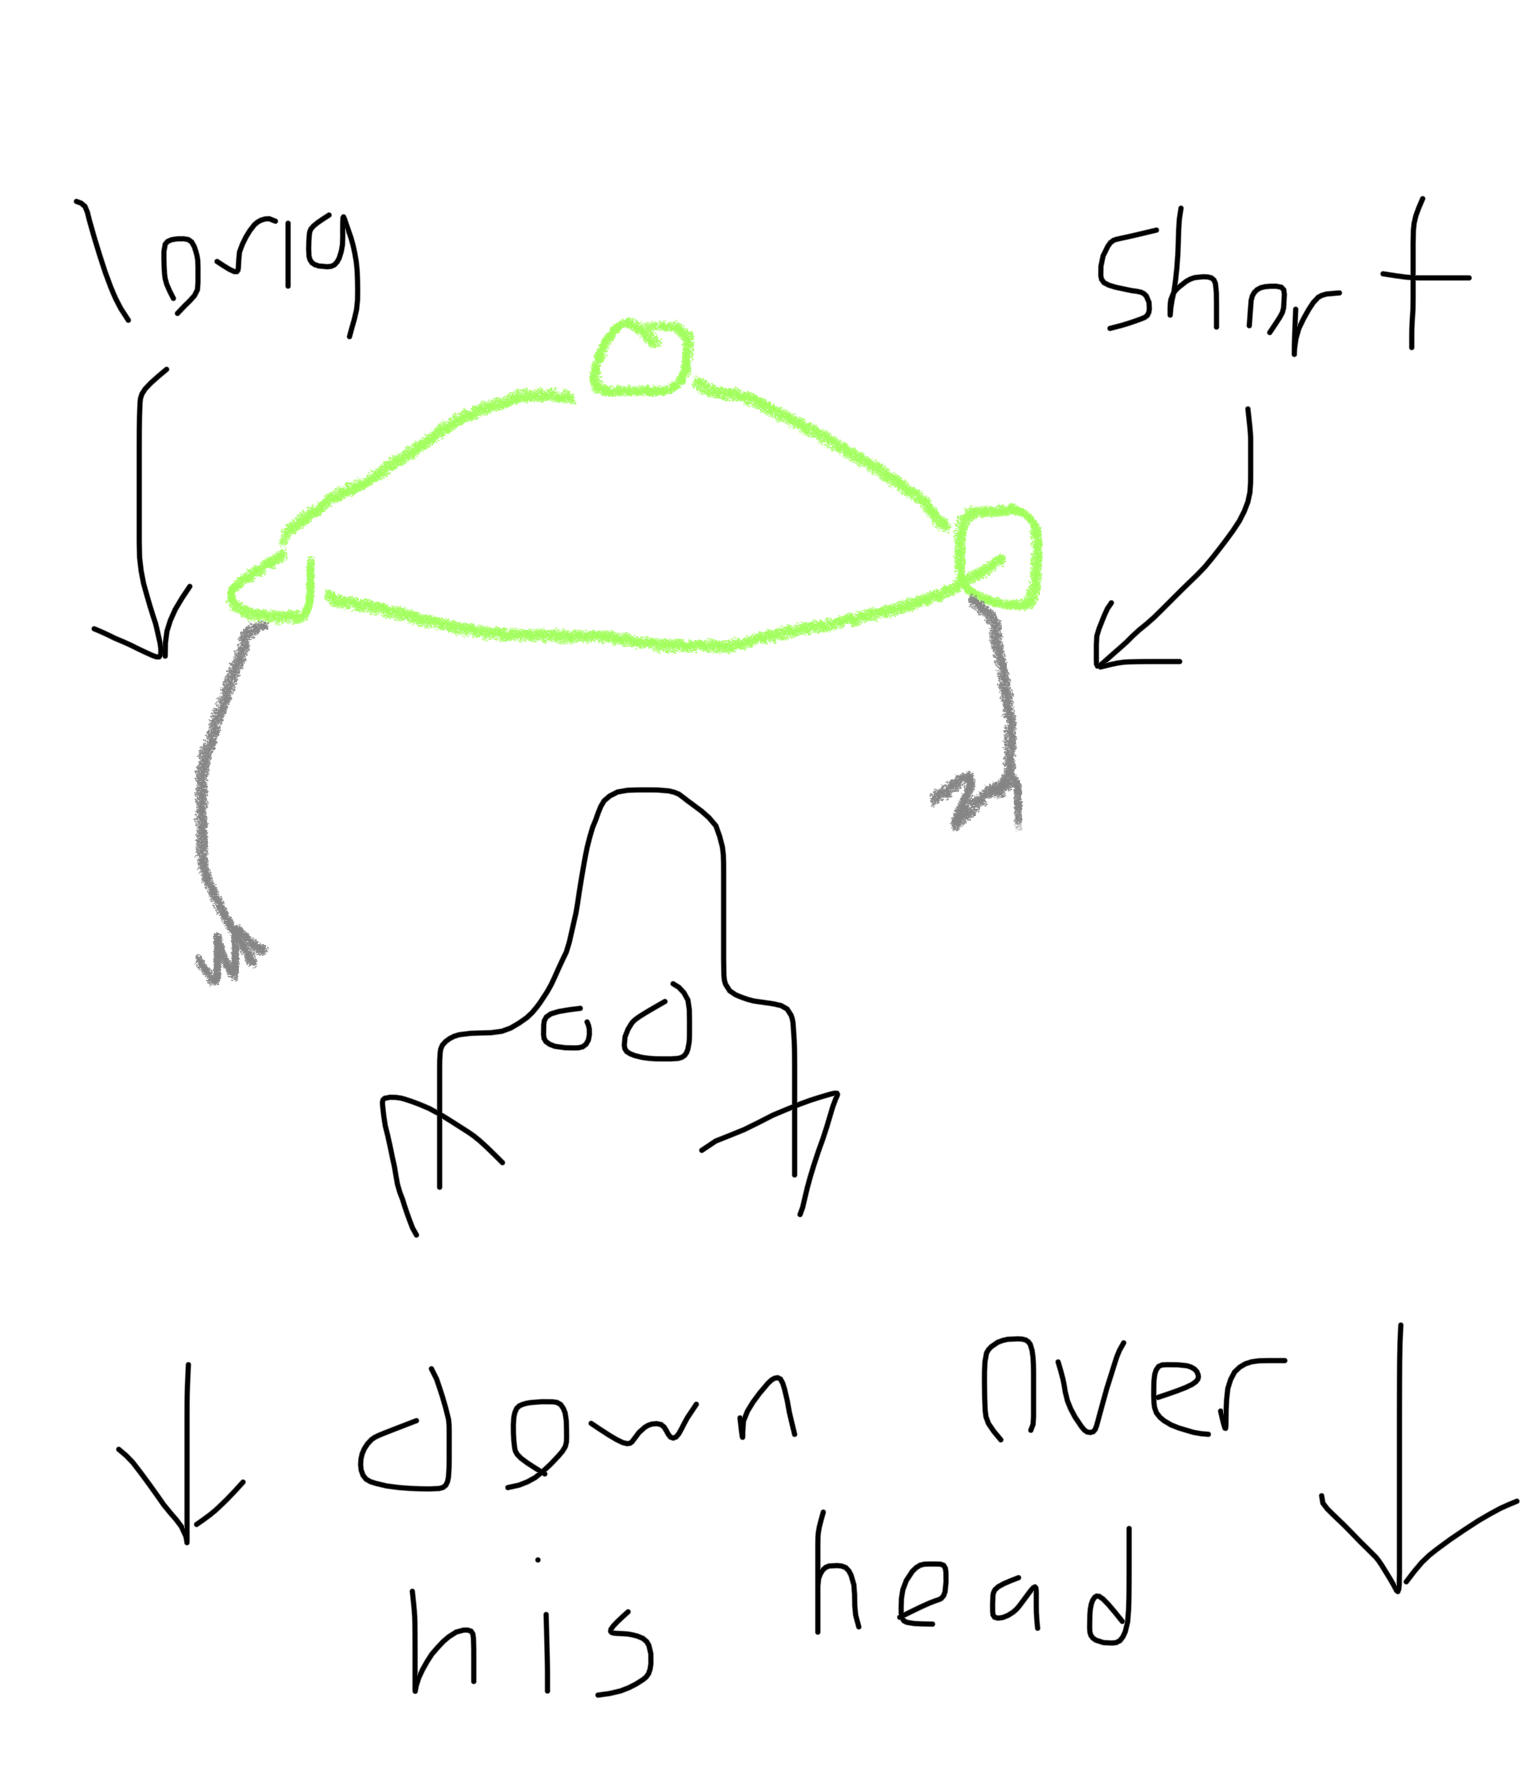 long short
down over
his head